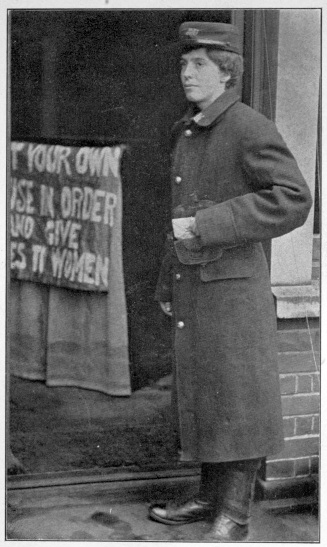 T YOUR OWN
SE IN ORDER
ND GIVE
ES TO WOMEN